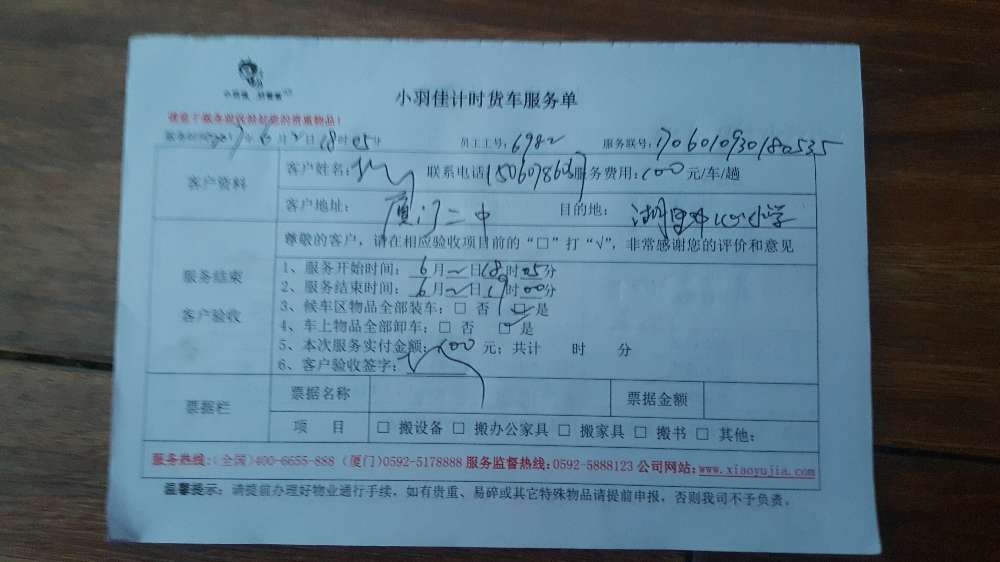 小羽佳计时货车服务单
员工工号：6982 服务联号：
客户资料 客户姓名： 联系电话 服务费用：100元/车/趟
客户地址：厦门二中 目的地：
尊敬的客户，请在相应验收项目前的“□”打“√”，非常感谢您的评价和意见
服务结束
客户验收
1、服务开始时间：6月2日18时05分
2、服务结束时间：6月2日19时00分
3、候车区物品全部装车：□ 否 ☑ 是
4、车上物品全部卸车：□ 否 ☑ 是
5、本次服务实付金额：100 元；共计 时 分
6、客户验收签字：
票据栏 票据名称 票据金额
项 目 □ 搬设备 □ 搬办公家具 □ 搬家具 □ 搬书 □ 其他：
服务热线：（全国）400-6655-888（厦门）0592-5178888 服务监督热线：0592-5888123 公司网站：www.xiaoyujia.com
温馨提示：请提前办理好物业通行手续，如有贵重、易碎或其它特殊物品请提前申报，否则我司不予负责。